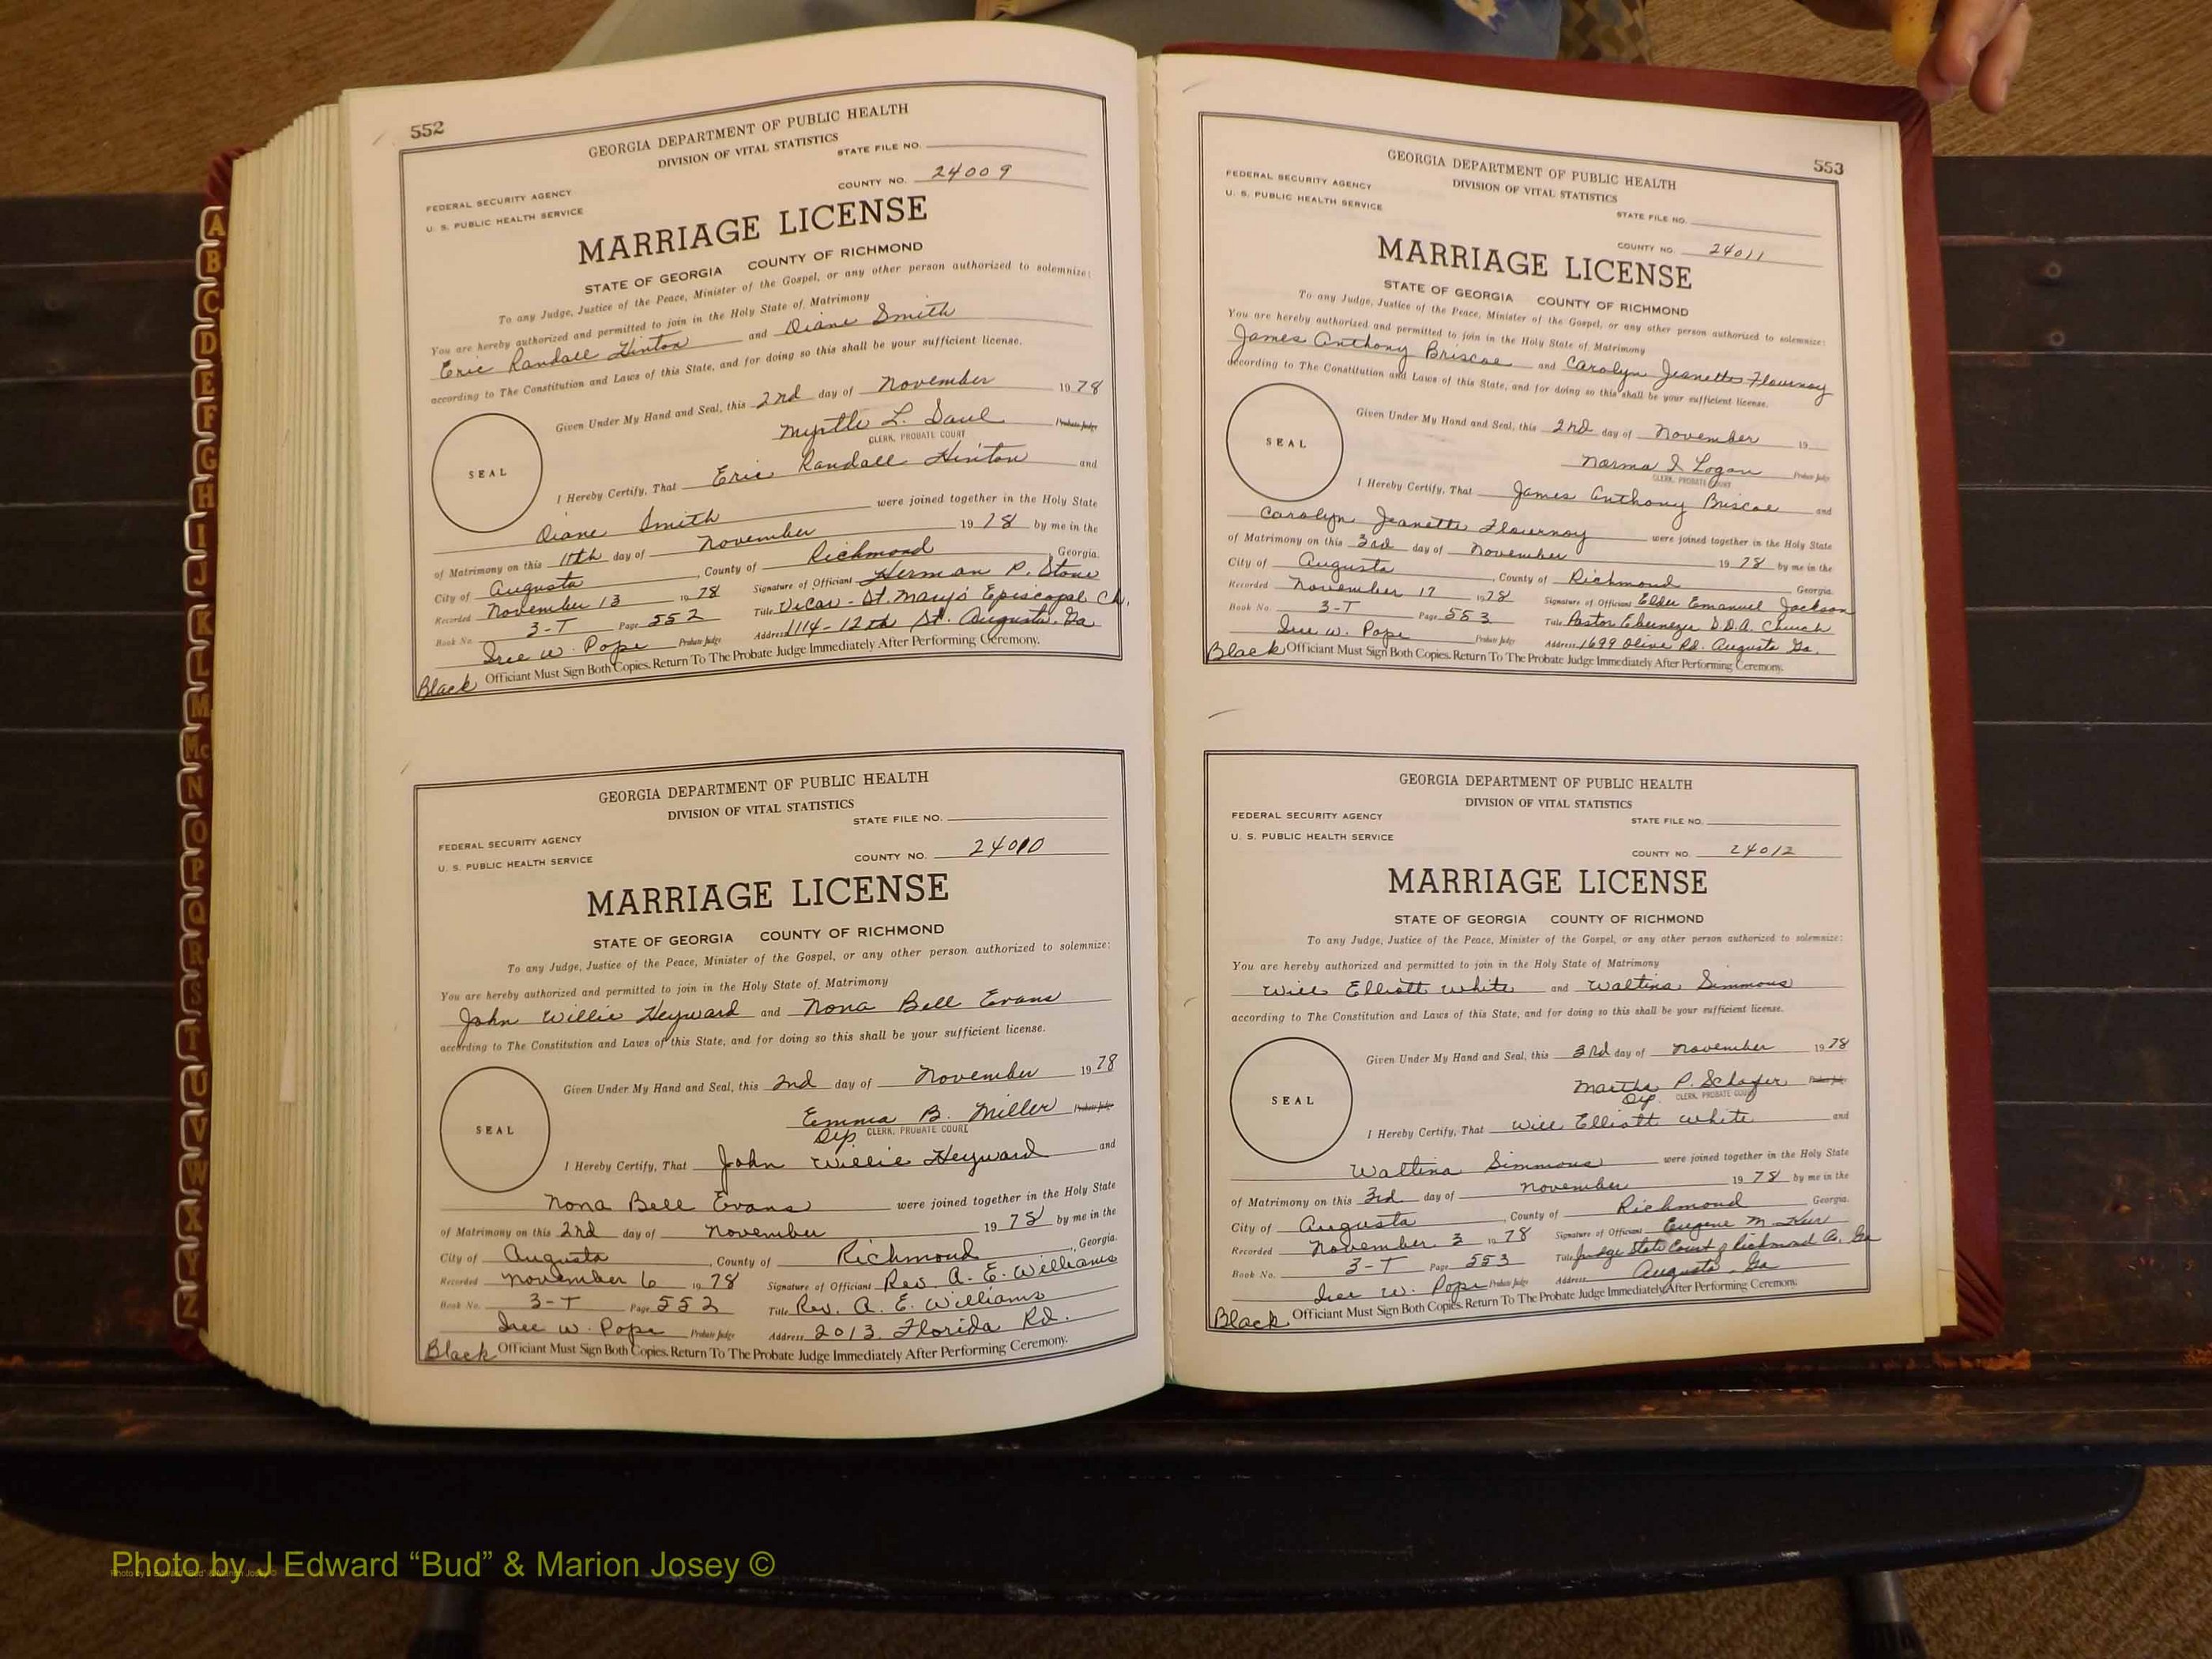 552
GEORGIA DEPARTMENT OF PUBLIC HEALTH
DIVISION OF VITAL STATISTICS
STATE FILE NO.
COUNTY NO. 24009
FEDERAL SECURITY AGENCY
U. S. PUBLIC HEALTH SERVICE
MARRIAGE LICENSE
STATE OF GEORGIA COUNTY OF RICHMOND
To any Judge, Justice of the Peace, Minister of the Gospel, or any other person authorized to solemnize:
You are hereby authorized and permitted to join in the Holy State of Matrimony
Eric Randall Hinton and Diane Smith
according to The Constitution and Laws of this State, and for doing so this shall be your sufficient license.
Given Under My Hand and Seal, this 2nd day of November 1978
Myrtle L. Saul Probate Judge
CLERK, PROBATE COURT
SEAL
I Hereby Certify, That Eric Randall Hinton and
Diane Smith were joined together in the Holy State
of Matrimony on this 11th day of November 1978 by me in the
City of Augusta, County of Richmond, Georgia.
Recorded November 13 1978 Signature of Officiant Herman P. Stone
Book No. 3-T Page 552 Title Vicar - St. Mary's Episcopal Ch.
Iree W. Pope Probate Judge Address 1114-12th St. Augusta, Ga
Black Officiant Must Sign Both Copies. Return To The Probate Judge Immediately After Performing Ceremony.
GEORGIA DEPARTMENT OF PUBLIC HEALTH
DIVISION OF VITAL STATISTICS
STATE FILE NO.
FEDERAL SECURITY AGENCY
U. S. PUBLIC HEALTH SERVICE
COUNTY NO. 24010
MARRIAGE LICENSE
STATE OF GEORGIA COUNTY OF RICHMOND
To any Judge, Justice of the Peace, Minister of the Gospel, or any other person authorized to solemnize:
You are hereby authorized and permitted to join in the Holy State of Matrimony
John Willie Heyward and Nona Bell Evans
according to The Constitution and Laws of this State, and for doing so this shall be your sufficient license.
Given Under My Hand and Seal, this 2nd day of November 1978
Emma B. Miller Probate Judge
Dep. CLERK, PROBATE COURT
SEAL
I Hereby Certify, That John Willie Heyward and
Nona Bell Evans were joined together in the Holy State
of Matrimony on this 2nd day of November 1978 by me in the
City of Augusta, County of Richmond, Georgia.
Recorded November 6 1978 Signature of Officiant Rev. A. E. Williams
Book No. 3-T Page 552 Title Rev. A. E. Williams
Iree W. Pope Probate Judge Address 2013 Florida Rd.
Black Officiant Must Sign Both Copies. Return To The Probate Judge Immediately After Performing Ceremony.
553
GEORGIA DEPARTMENT OF PUBLIC HEALTH
DIVISION OF VITAL STATISTICS
FEDERAL SECURITY AGENCY
U. S. PUBLIC HEALTH SERVICE
STATE FILE NO.
COUNTY NO. 24011
MARRIAGE LICENSE
STATE OF GEORGIA COUNTY OF RICHMOND
To any Judge, Justice of the Peace, Minister of the Gospel, or any other person authorized to solemnize:
You are hereby authorized and permitted to join in the Holy State of Matrimony
James Anthony Briscoe and Carolyn Jeanette Flournoy
according to The Constitution and Laws of this State, and for doing so this shall be your sufficient license.
Given Under My Hand and Seal, this 2nd day of November 19
Norma I Logan Probate Judge
CLERK, PROBATE COURT
SEAL
I Hereby Certify, That James Anthony Briscoe and
Carolyn Jeanette Flournoy were joined together in the Holy State
of Matrimony on this 3rd day of November 1978 by me in the
City of Augusta, County of Richmond Georgia.
Recorded November 17 1978 Signature of Officiant Elder Emanuel Jackson
Book No. 3-T Page 553 Title Pastor Ebenezer S.D.A. Church
Iree W. Pope Probate Judge Address 1699 Olive Rd. Augusta Ga.
Black Officiant Must Sign Both Copies. Return To The Probate Judge Immediately After Performing Ceremony.
GEORGIA DEPARTMENT OF PUBLIC HEALTH
DIVISION OF VITAL STATISTICS
FEDERAL SECURITY AGENCY
STATE FILE NO.
U. S. PUBLIC HEALTH SERVICE
COUNTY NO. 24012
MARRIAGE LICENSE
STATE OF GEORGIA COUNTY OF RICHMOND
To any Judge, Justice of the Peace, Minister of the Gospel, or any other person authorized to solemnize:
You are hereby authorized and permitted to join in the Holy State of Matrimony
Will Elliott White and Waltina Simmons
according to The Constitution and Laws of this State, and for doing so this shall be your sufficient license.
Given Under My Hand and Seal, this 3rd day of November 1978
Martha P. Schafer Probate Judge
Dep. CLERK, PROBATE COURT
SEAL
I Hereby Certify, That Will Elliott White and
Waltina Simmons were joined together in the Holy State
of Matrimony on this 3rd day of November 1978 by me in the
City of Augusta, County of Richmond Georgia.
Recorded November 3 1978 Signature of Officiant Eugene M. Kerr
Book No. 3-T Page 553 Title Judge State Court of Richmond Co. Ga
Iree W. Pope Probate Judge Address Augusta, Ga
Black Officiant Must Sign Both Copies. Return To The Probate Judge Immediately After Performing Ceremony.
A
B
C
D
E
F
G
H
I
J
K
L
M
Mc
N
O
P
Q
R
S
T
U
V
W
X
Y
Z
Photo by J Edward “Bud” & Marion Josey ©
Photo by J Edward “Bud” & Marion Josey ©